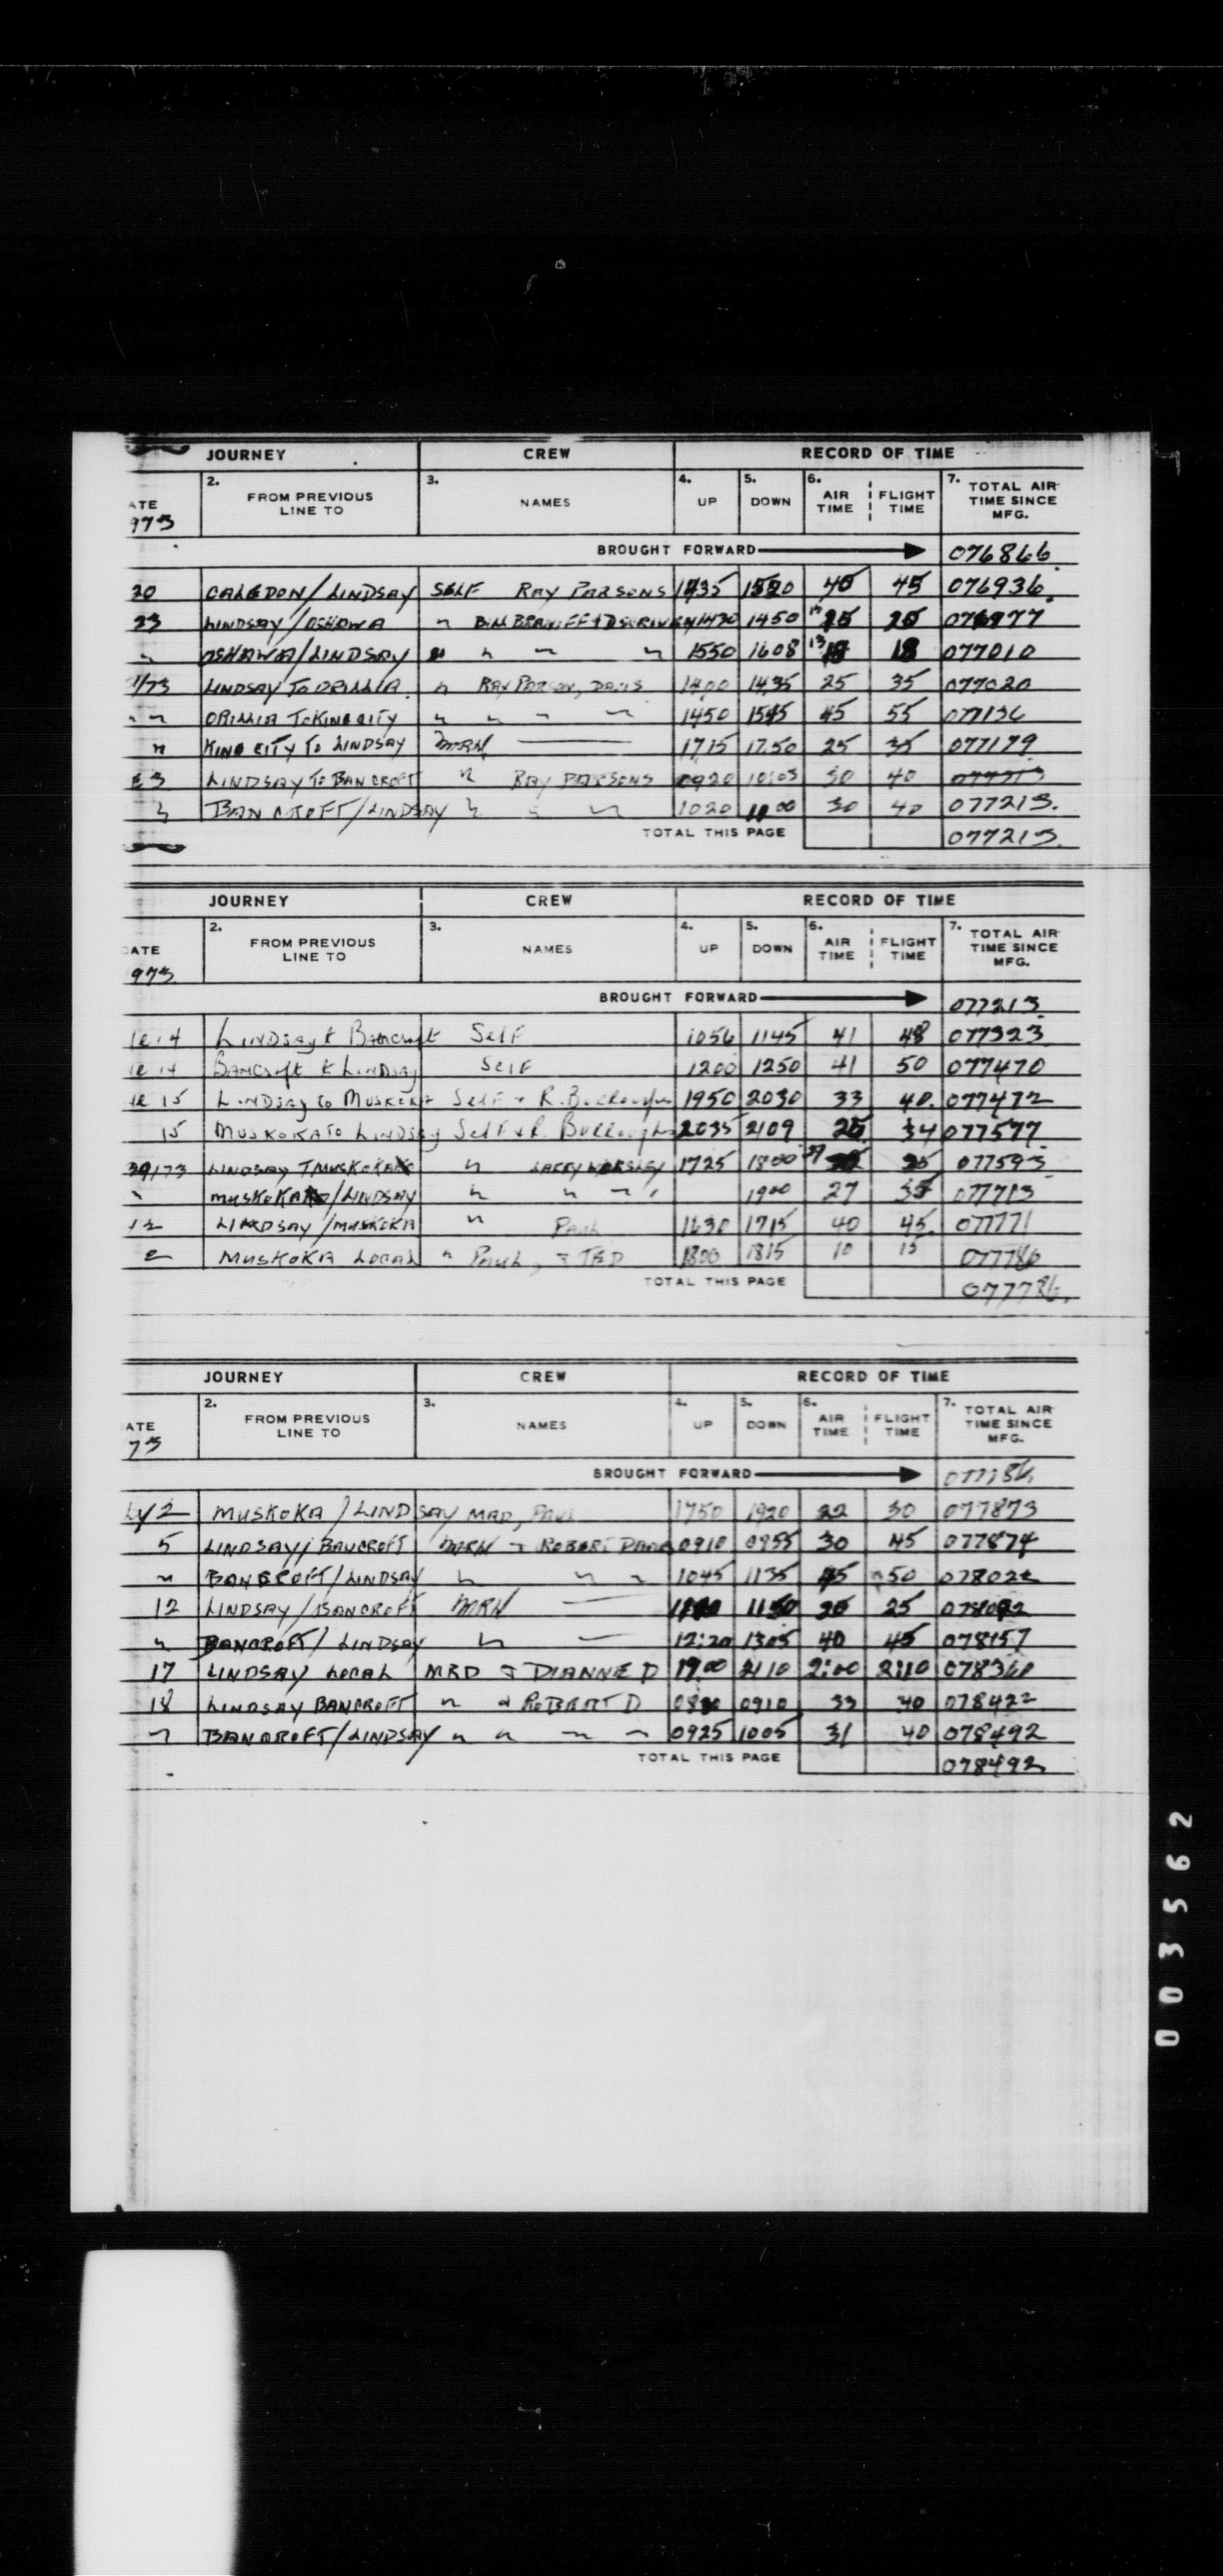 JOURNEY CREW RECORD OF TIME
ATE 973 2. FROM PREVIOUS LINE TO 3. NAMES 4. UP 5. DOWN 6. AIR TIME FLIGHT TIME 7. TOTAL AIR TIME SINCE MFG.
BROUGHT FORWARD 076866
20 CALEDON/LINDSAY SELF RAY PARSONS 1435 1520 40 45 076936
23 LINDSAY/OSHAWA " 1430 1450 20 076977
" OSHAWA/LINDSAY " " " " 1550 1608 13 18 077010
1/73 LINDSAY TO ORILLIA " RAY PARSON, DAVIS 1400 1435 25 35 077020
" " ORILLIA TO KING CITY " " " " 1450 1545 45 55 077136
" KING CITY TO LINDSAY MRH 1715 1750 25 35 077179
E 3 LINDSAY TO BANCROFT " RAY PARSONS 0920 10:03 30 40
" BANCROFT/LINDSAY " " " 1020 1100 30 40 077213.
TOTAL THIS PAGE 077213.
JOURNEY CREW RECORD OF TIME
ATE 973 2. FROM PREVIOUS LINE TO 3. NAMES 4. UP 5. DOWN 6. AIR TIME FLIGHT TIME 7. TOTAL AIR TIME SINCE MFG.
BROUGHT FORWARD 077213
14 Lindsay t Bancroft Self 1056 1145 41 48 077323
14 Bancroft t Lindsay Self 1200 1250 41 50 077470
15 Lindsay to Muskoka Self + R. Burroughs 1950 2030 33 40. 077472
15 Muskoka to Lindsay Self & R. Burroughs 2035 2109 25 34 077577
29/73 LINDSAY T MUSKOKA " LARRY WORSLEY 1725 1800 27 35 077593
" MUSKOKA/LINDSAY " " " " 1900 27 35 077713
12 LINDSAY/MUSKOKA " PAUL 1630 1715 40 45 077771
2 MUSKOKA LOCAL " PAUL, & TED 1800 1815 10 15 077786
TOTAL THIS PAGE 077786.
JOURNEY CREW RECORD OF TIME
ATE 73 2. FROM PREVIOUS LINE TO 3. NAMES 4. UP 5. DOWN 6. AIR TIME FLIGHT TIME 7. TOTAL AIR TIME SINCE MFG.
BROUGHT FORWARD 077786
LY 2 MUSKOKA/LINDSAY MRD, PAUL 1750 1920 22 30 077873
5 LINDSAY/BANCROFT MRH & ROBERT 0910 0955 30 45 077874
" BANCROFT/LINDSAY " " " 1045 1135 45 50 078022
12 LINDSAY/BANCROFT MRH 1150 20 25 078092
" BANCROFT/LINDSAY " 12:20 1305 40 45 078157
17 LINDSAY LOCAL MRD & DIANNE D 1900 2110 2:00 2:10 078361
18 LINDSAY BANCROFT " & ROBERT D 0830 0910 33 40 078422
" BANCROFT/LINDSAY " " " " 0925 1005 31 40 078492
TOTAL THIS PAGE 078492
003562